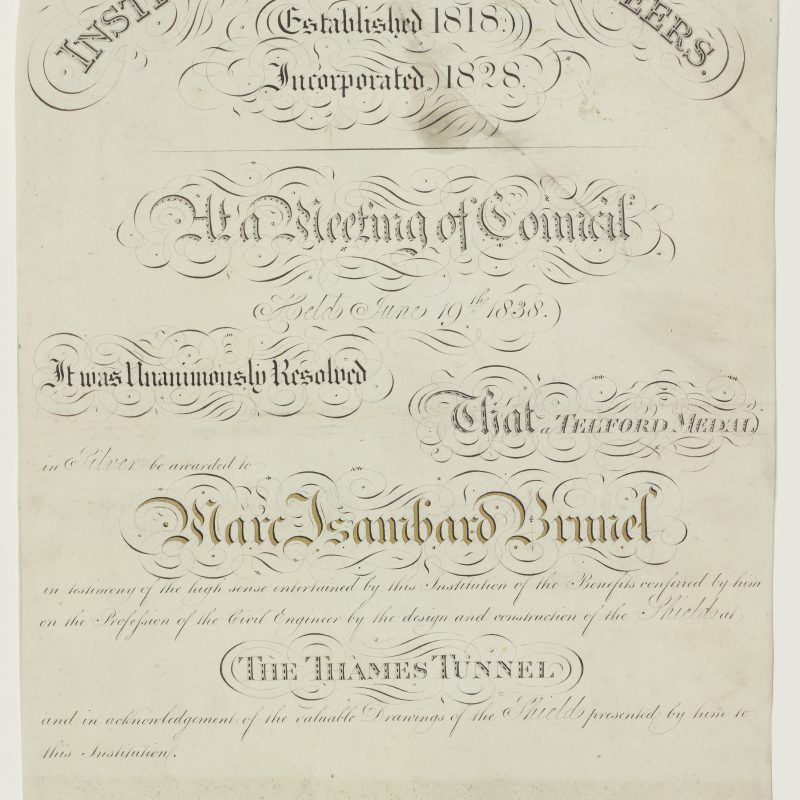 INSTI EERS.
(Established 1818.)
Incorporated, 1828.
At a Meeting of Council
Held June 19th 1838.
It was Unanimously Resolved
That a TELFORD MEDAL
in Silver be awarded to
Marc Isambard Brunel
in testimony of the high sense entertained by this Institution of the Benefits conferred by him
on the Profession of the Civil Engineer by the design and construction of the Shield at
THE THAMES TUNNEL
and in acknowledgement of the valuable Drawings of the Shield presented by him to
this Institution.